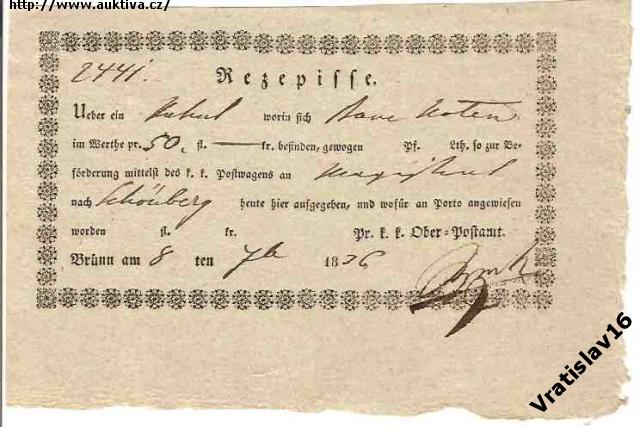 http://www.auktiva.cz/
2441.
Rezepisse.
Ueber ein worin sich Baar Noten
im Werthe pr. 50, fl. — kr. befinden, gewogen Pf. Lth. so zur Be-
förderung mittelst des k. k. Postwagens an Magistrat
nach Schönberg heute hier aufgegeben, und wofür an Porto angewiesen
worden fl. kr. Pr. k. k. Ober-Postamt.
Brünn am 8 ten 7b 1836
Vratislav16